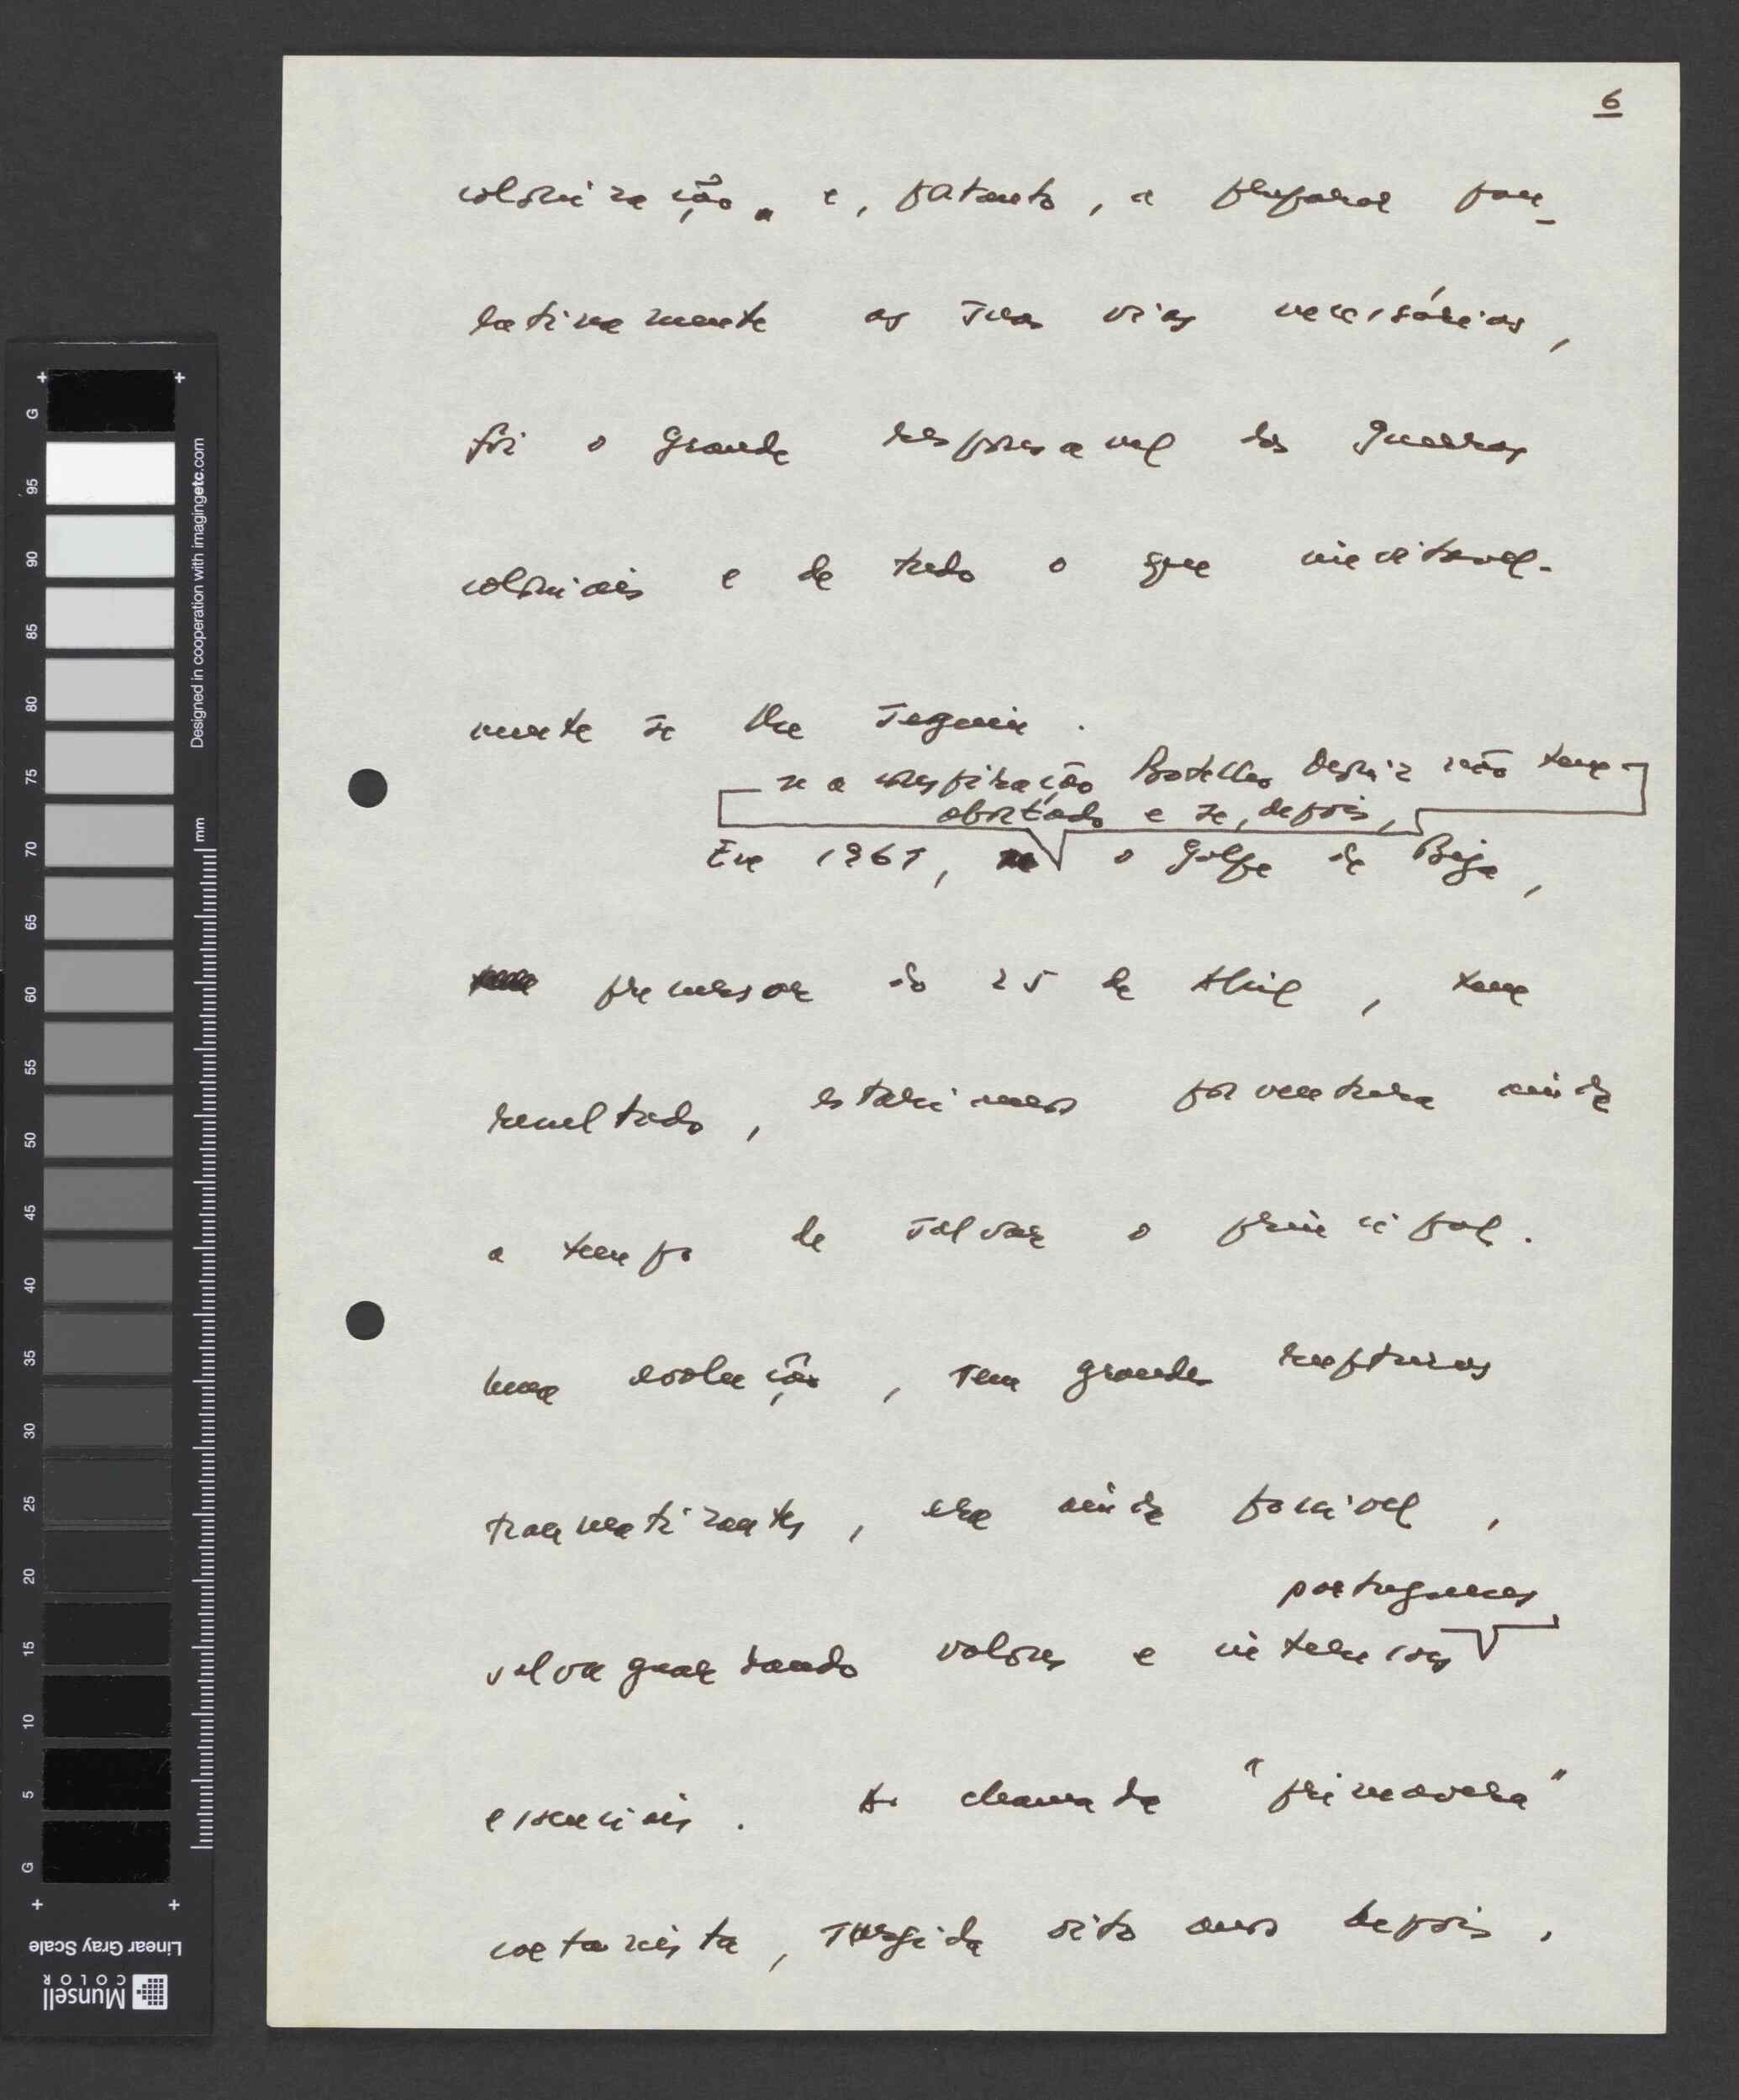 6
colonização e, portanto, a preparar pau-
latinamente as suas vias necessárias,
foi o grande responsavel das guerras
coloniais e de tudo o que inevitavel-
mente se lhe seguiu.
se a conspiração Botelho Moniz não tem
abortado e se, depois,
Em 1961, o golpe de Beja,
precursor do 25 de Abril, tem
resultado, estariamos porventura ainda
a tempo de salvar o principal.
Uma evolução, sem grandes rupturas
traumatizantes, era ainda possivel,
portugueses
salvaguardando valores e interesses
essenciais. A chamada "primavera"
caetanista, surgida oito anos depois,
G
95
90
85
80
75
70
65
60
55
50
45
40
35
30
25
20
15
10
5
G
mm
Designed in cooperation with imagingetc.com
Linear Gray Scale
Munsell
COLOR